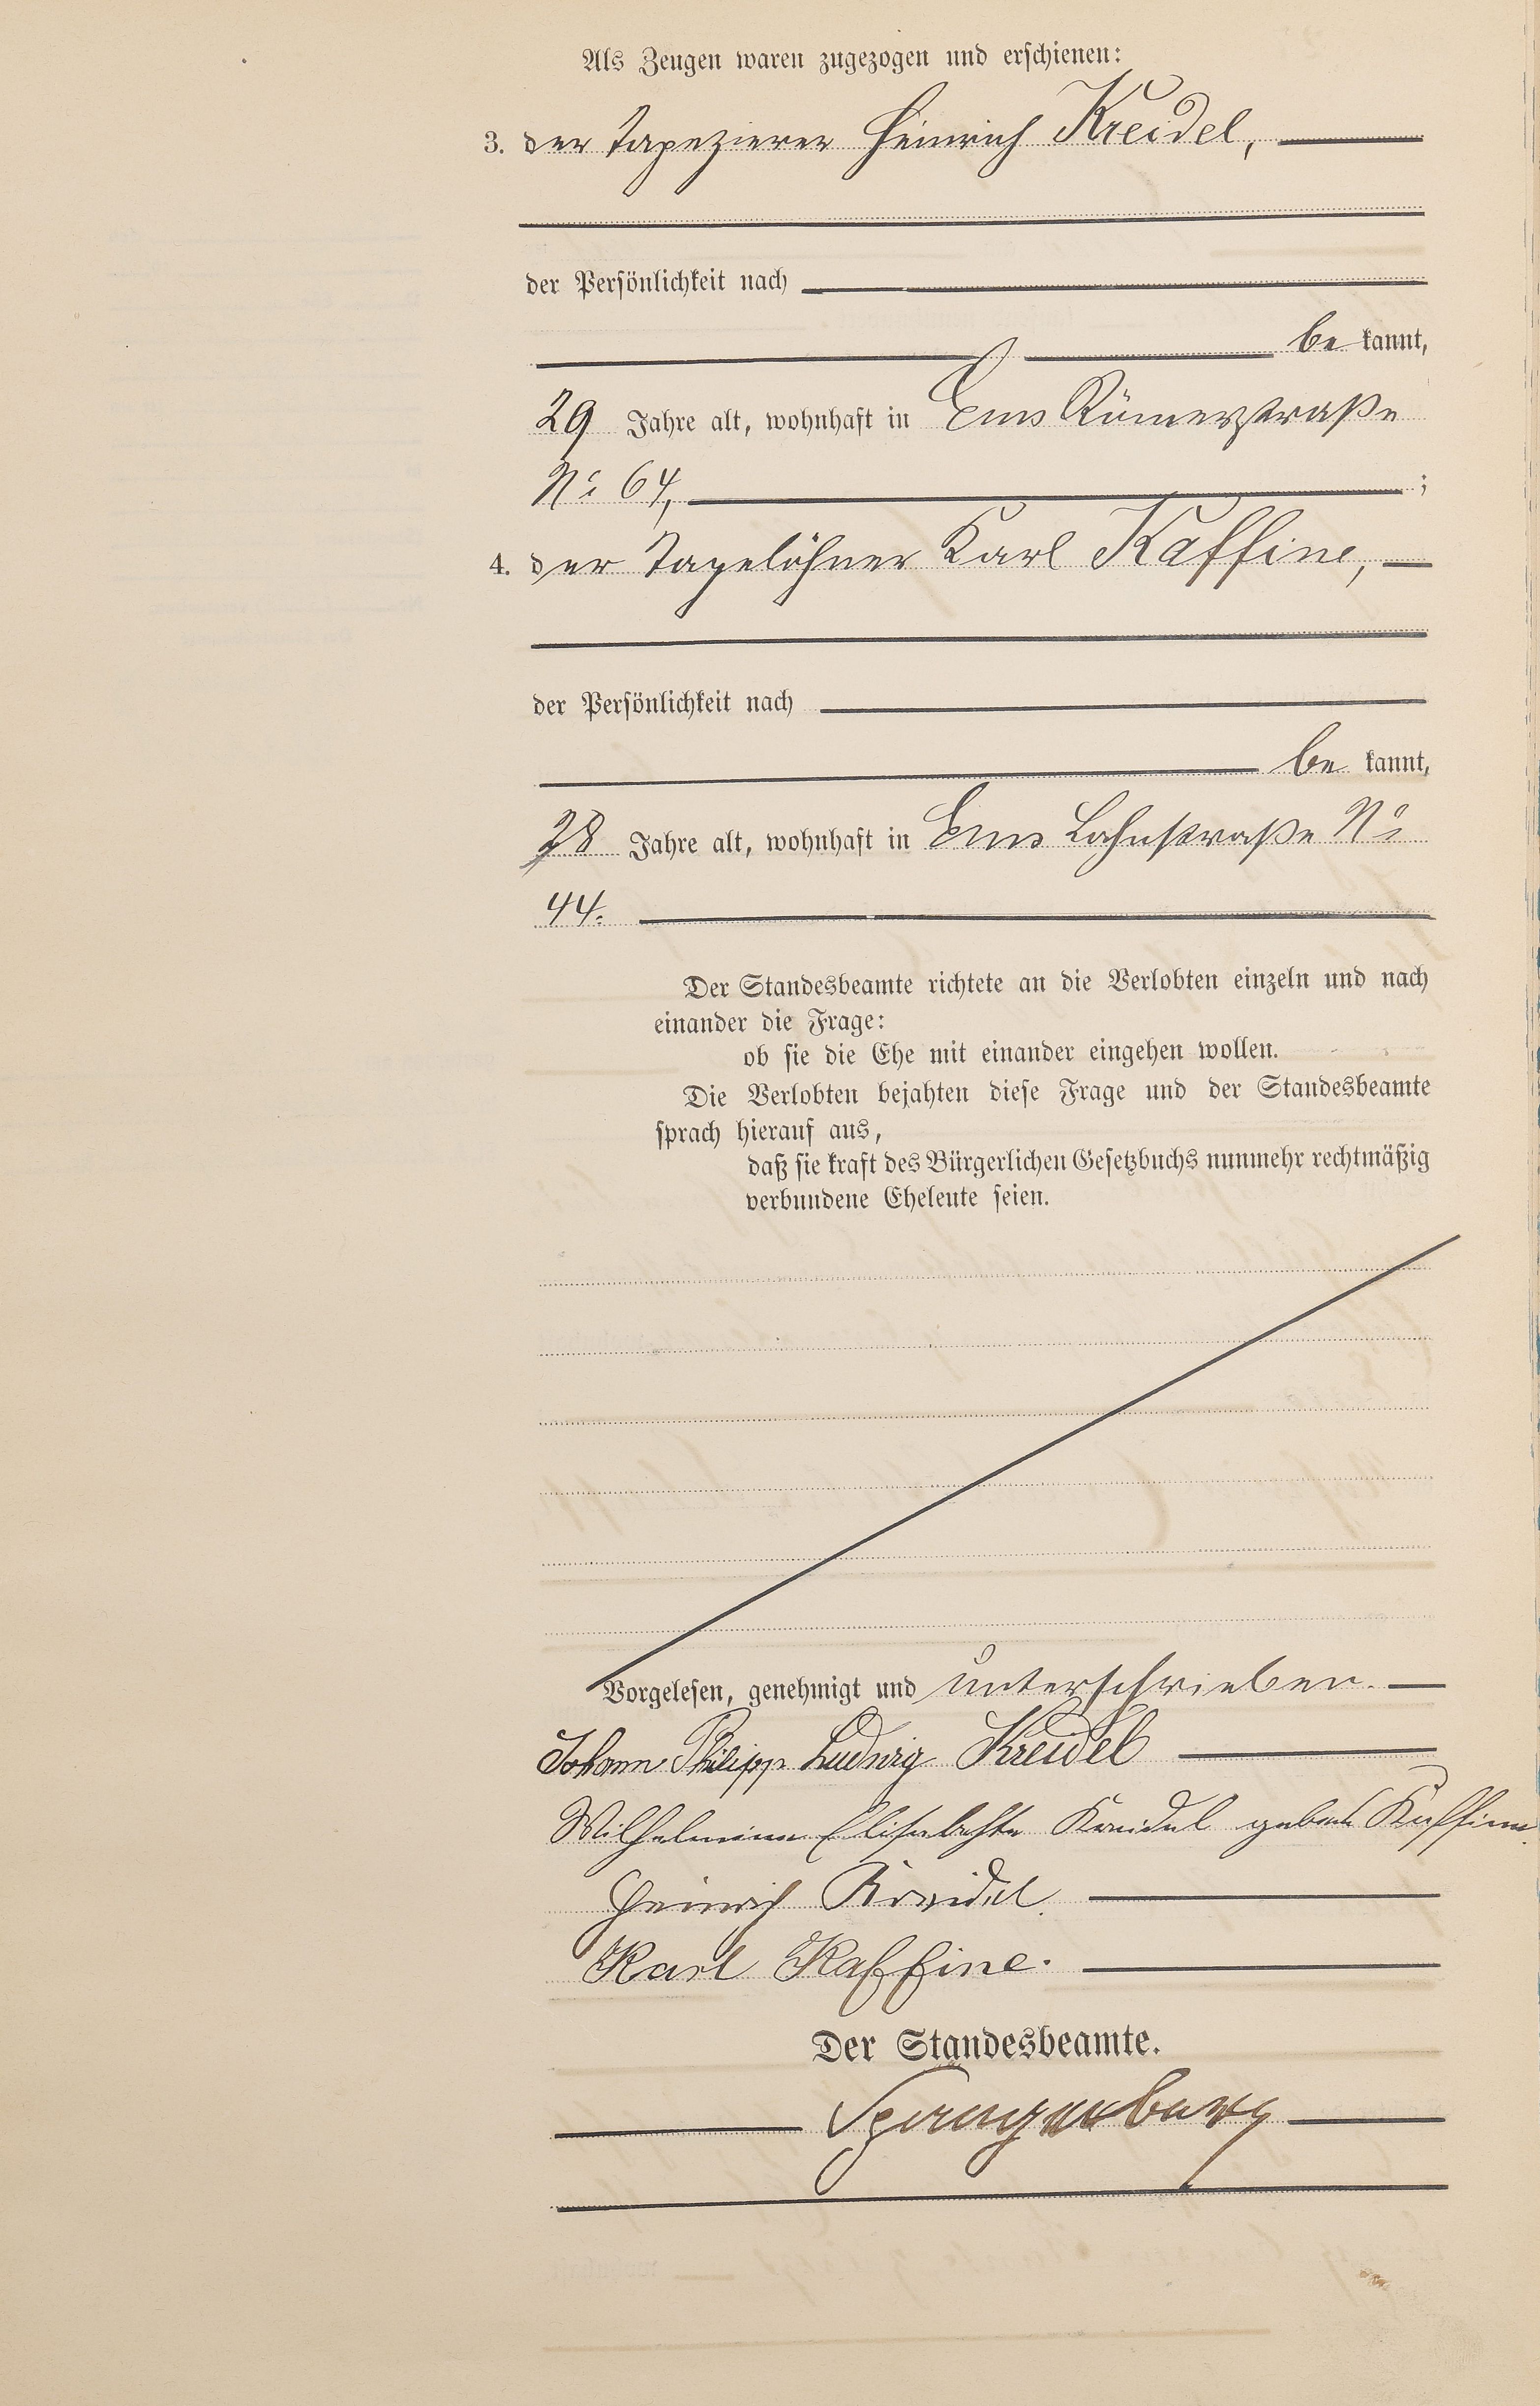 Als Zeugen waren zugezogen und erschienen:
3. der Tapezierer Heinrich Kreidel,
der Persönlichkeit nach
be kannt,
29 Jahre alt, wohnhaft in Ems Römerstraße
No 64, ;
4. der Tagelöhner Karl Kaffine,
der Persönlichkeit nach
be kannt,
28 Jahre alt, wohnhaft in Ems Lahnstraße No
44.
Der Standesbeamte richtete an die Verlobten einzeln und nach
einander die Frage:
ob sie die Ehe mit einander eingehen wollen.
Die Verlobten bejahten diese Frage und der Standesbeamte
sprach hierauf aus,
daß sie kraft des Bürgerlichen Gesetzbuchs nunmehr rechtmäßig
verbundene Eheleute seien.
Vorgelesen, genehmigt und unterschrieben.
Johann Philipp Ludwig Kreidel
Wilhelmine Elisabethe Kreidel geborne Kaffine.
Heinrich Kreidel.
Karl Kaffine.
Der Standesbeamte.
Spangenberg